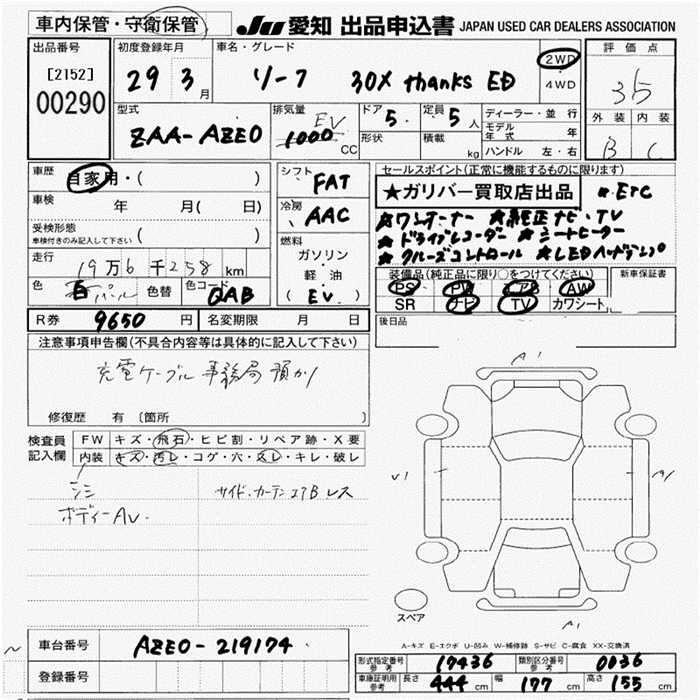 車内保管・守衛保管
JU 愛知 出品申込書 JAPAN USED CAR DEALERS ASSOCIATION
出品番号
[2152]
00290
初度登録年月
29 3月
車名・グレード
リーフ 30X thanks ED
2WD
・
4WD
評価点
3.5
外装 内装
B C
型式
ZAA-AZE0
排気量
EV
1000 CC
ドア 5
定員 5人
形状
積載 kg
ディーラー・並行
モデル年式 年
ハンドル 左・右
車歴
自家用・( )
車検 年 月( 日)
受検形態
車検付きのみ記入して下さい ( )
走行
19万6千258km
色 白 パール 色替 色コード QAB
シフト FAT
冷房 AAC
燃料
ガソリン
・
軽・油
( EV )
セールスポイント(正常に機能するものに限ります)
★ガリバー買取店出品 ★ETC
★ワンオーナー ★純正ナビ・TV
★ドライブレコーダー ★シートヒーター
★クルーズコントロール ★LEDヘッドランプ
装備品(純正品に限り○をつけてください)
PS PW AB AW
SR ナビ TV カワシート
新車保証書
後日品
R券 9650円 名変期限 月 日
注意事項申告欄(不具合内容等は具体的に記入して下さい)
充電ケーブル事務局預かり
修復歴 有〔箇所 〕
検査員
記入欄
FW キズ・飛石・ヒビ割・リペア跡・X要
内装 キズ・汚レ・コゲ・穴・スレ・キレ・破レ
シミ
ボディーAU.
サイド・カーテンエアB レス
A1
V1
A1
A1
スペア
A-キズ E-エクボ U-凹み W-補修跡 S-サビ C-腐食 XX-交換済
車台番号 AZE0-219174
登録番号
形式指定番号
参考 17436
類別区分番号
参考 0036
車庫証明用
参考 長さ 444cm 幅 177cm 高さ 155cm